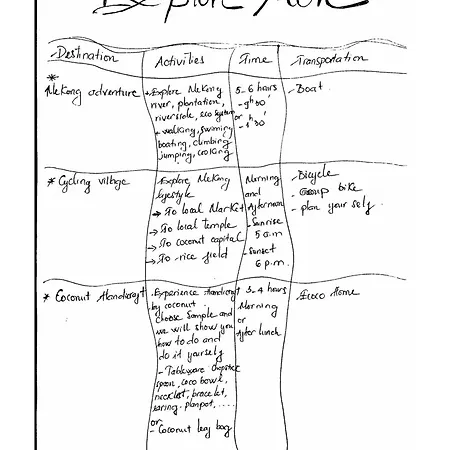 Explore More
- Destination
Activities
Time
Transportation
* Mekong adventure
+ Explore Mekong
river, plantation,
riverside, eco system
- walking, swiming
boating, climbing
jumping, cooking
5-6 hours
- 9h30'
or
- 1h30'
- Boat
* Cycling village
. Explore Mekong
lifestyle
→ To local Market
→ To local temple
→ To coconut capital
→ To rice field
Morning
and
Afternoon
- Sunrise
5 a.m
- Sunset
6 p.m.
- Bicycle
- Group bike
- plan your self.
* Coconut Handcraft
. Experience Handcraft
by coconut.
choose Sample and
we will show you
how to do and
do it yourself
- Tableware Chopstick
spoon, coco bowl,
necklest, bracelet,
earing. planpot, ....
or
- Coconut leaf bag
3-4 hours
Morning
or
After lunch
Home